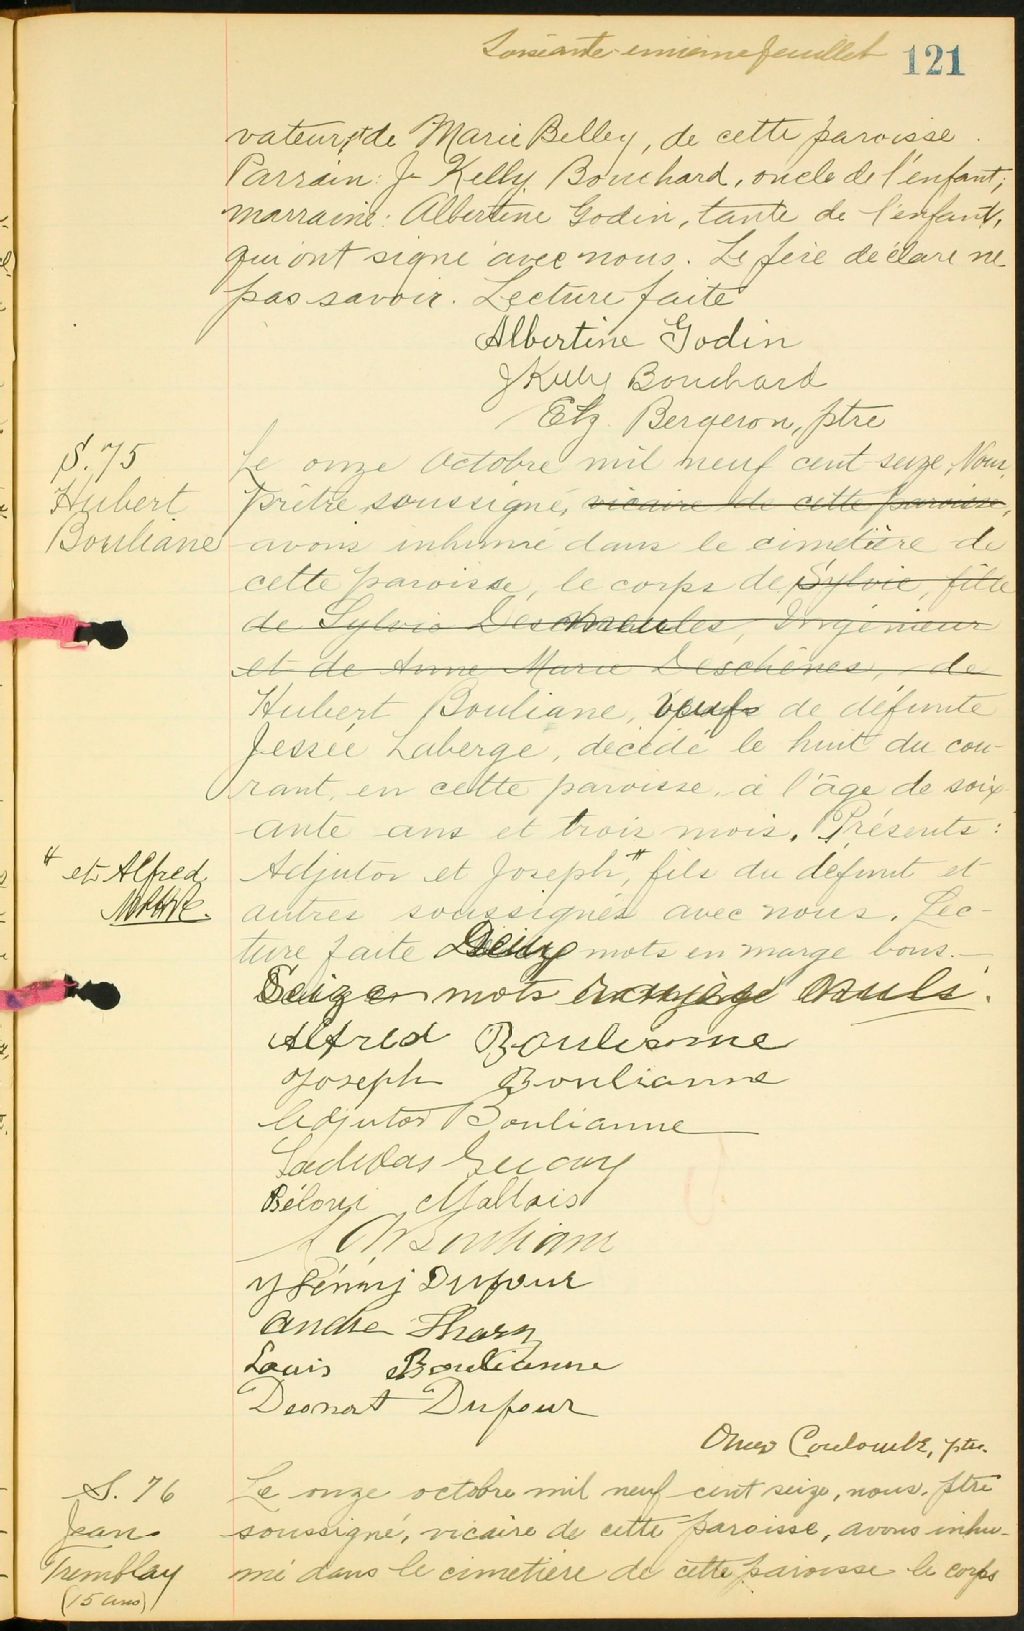 Soixante-unième feuillet 121
vateur, et de Marie Belley, de cette paroisse.
Parrain: J. Kelly Bouchard, oncle de l'enfant;
marraine: Albertine Godin, tante de l'enfant,
qui ont signé avec nous. Le père déclare ne
pas savoir. Lecture faite
Albertine Godin
J Kelly Bouchard
Elz. Bergeron, ptre
S. 75
Hubert
Bouliane
Le onze Octobre mil neuf cent seize, Nous,
prêtre soussigné, vicaire de cette paroisse,
avons inhumé dans le cimetière de
cette paroisse, le corps de Sylvie, fille
de Sylvio Desmeules, Ingénieur
et de Anne Marie Deschênes, de
Hubert Bouliane, veuf de défunte
Jessée Laberge, décédé le huit du cou-
rant, en cette paroisse, à l'âge de soix-
ante ans et trois mois. Présents:
Adjutor et Joseph,# fils du défunt et
# et Alfred
autres soussignés avec nous. Lec-
ture faite Deux mots en marge bons.
Seize mots nuls.
Alfred Boulianne
Joseph Boulianne
Adjutor Boulianne
Béloni Maltais
Dufour
André
Louis Boulianne
Deonat Dufour
Omer Coulombe, ptre.
S. 76
Jean
Tremblay
(15 ans)
Le onze octobre mil neuf cent seize, nous, ptre
soussigné, vicaire de cette paroisse, avons inhu-
mé dans le cimetière de cette paroisse le corps